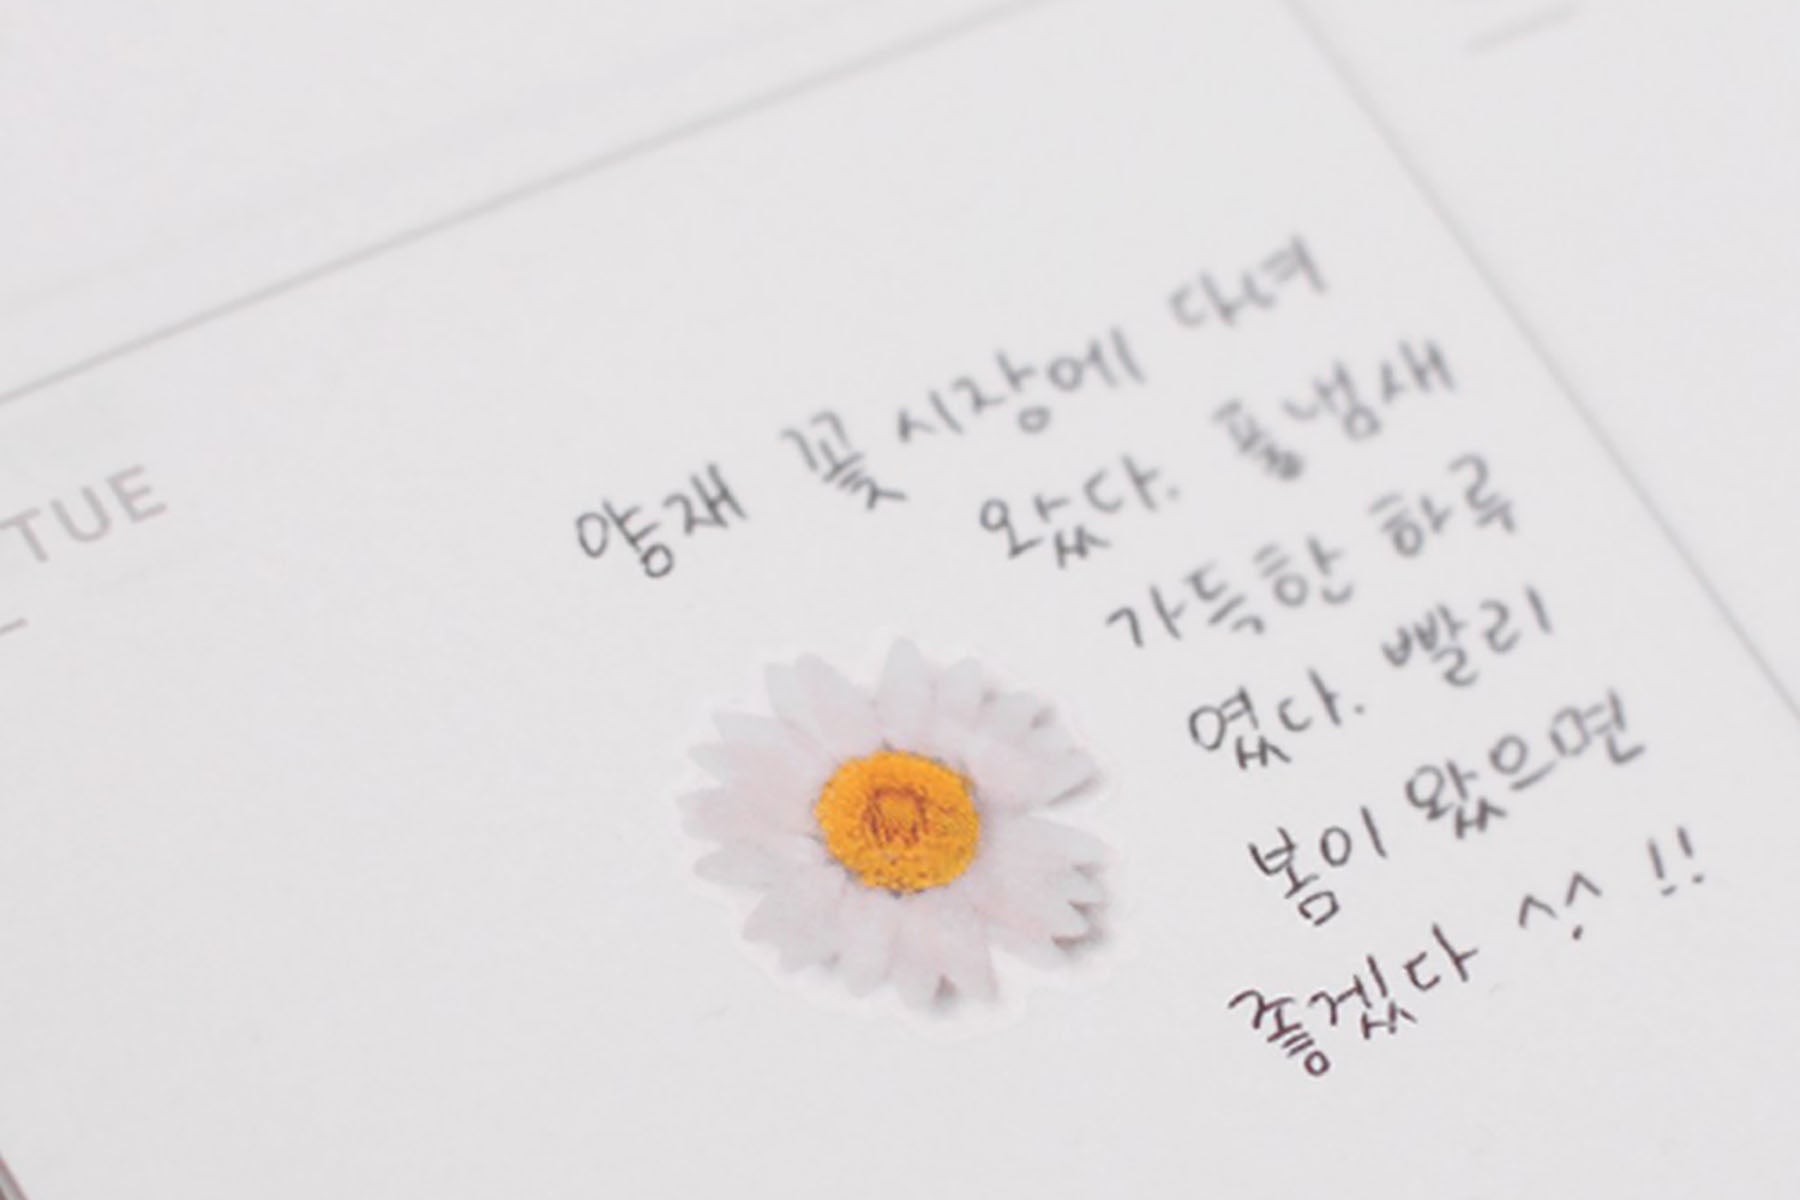 TUE
양재 꽃 시장에 다녀
왔다. 풀냄새
가득한 하루
였다. 빨리
봄이 왔으면
좋겠다 ^.^ !!